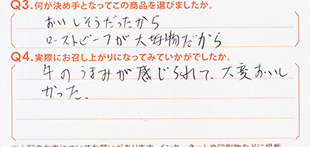 Q3.何が決め手となってこの商品を選びましたか。
おいしそうだったから
ローストビーフが大好物だから
Q4.実際にお召し上がりになってみていかがでしたか。
牛のうまみが感じられて、大変おいし
かった。